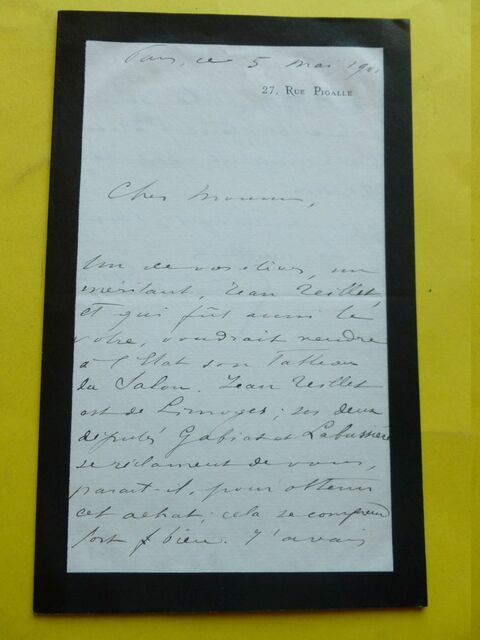 Paris, ce 5 mai 1901
27, Rue Pigalle
Cher Monsieur,
Un de vos élèves, un
méritant, Jean Teillet,
et qui fût aussi le
vôtre, voudrait vendre
à l'Etat son Tableau
du Salon. Jean Teillet
est de Limoges; ses deux
députés Gabiat et Labussière
se réclament de vous,
parait il, pour obtenir
cet achat; cela se comprend
fort bien. J'avais